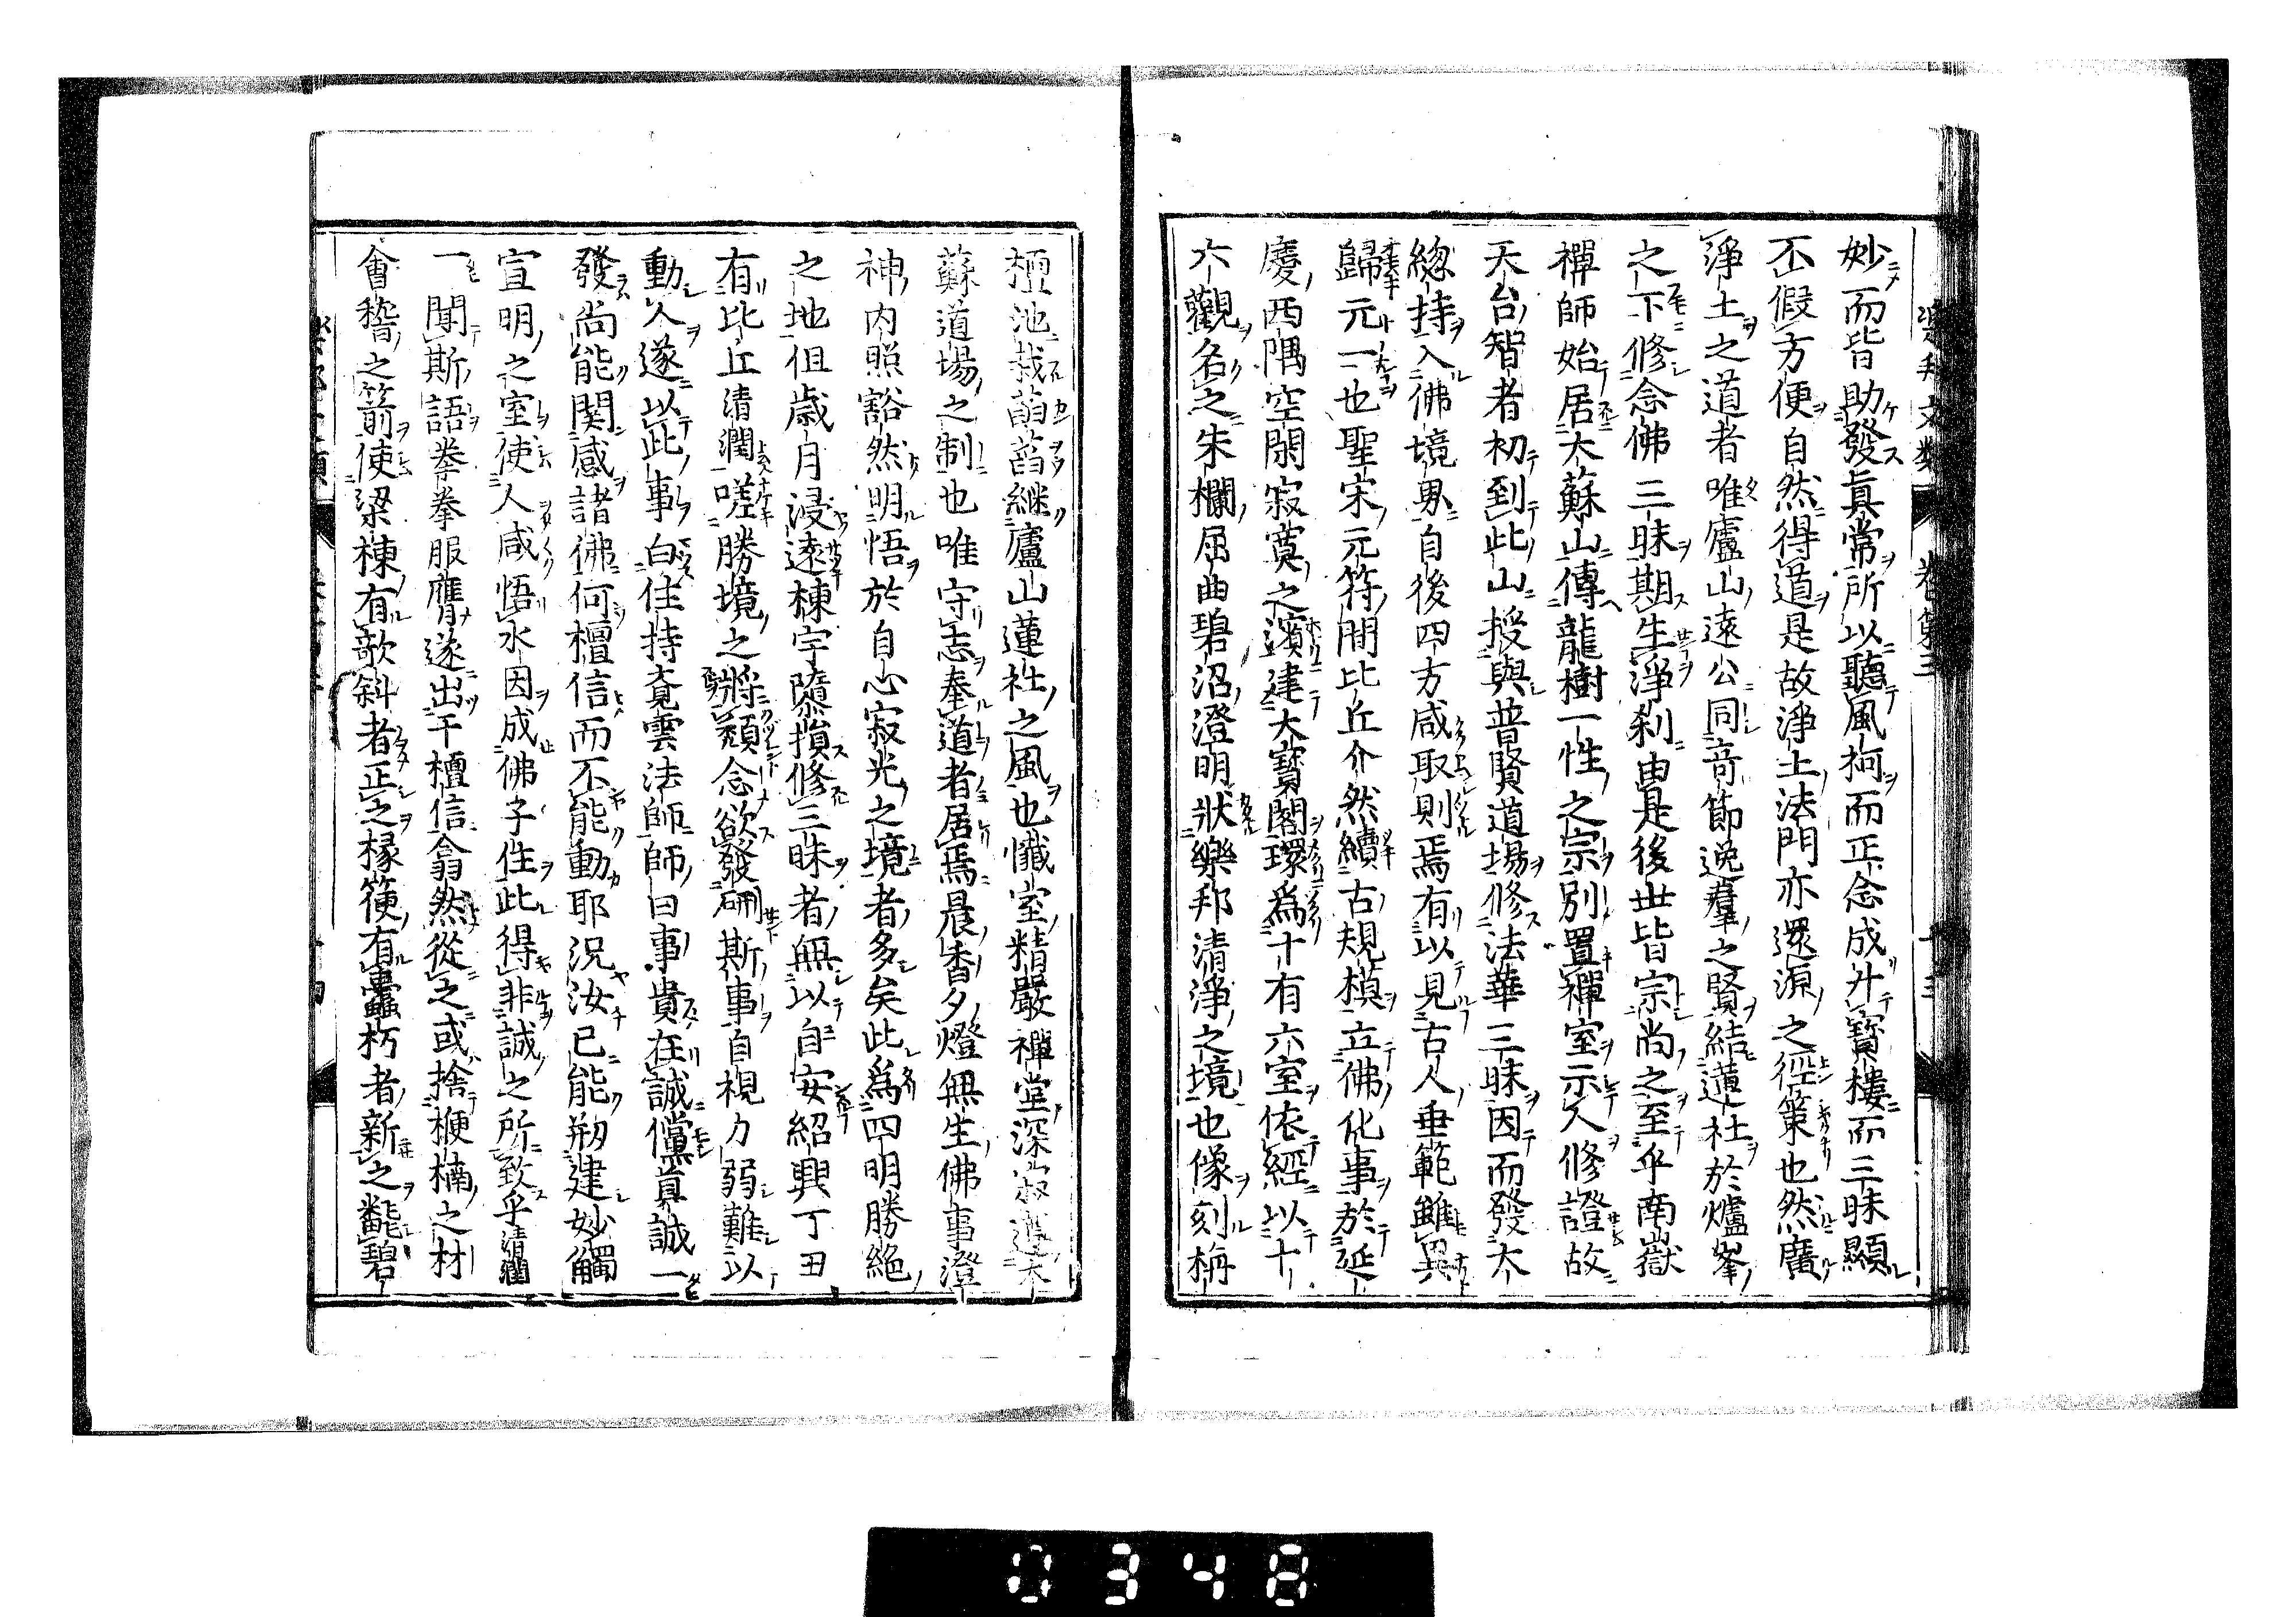 樂邦文類 卷第三
妙而皆助發眞常所以聽風柯而正念成升寳樓而三昧顯
不假方便自然得道是故淨土法門亦還源之徑策也然廣
淨土之道者唯廬山遠公同竒節逸羣之賢結蓮社於爐峯
之下修念佛三昧期生淨刹由是後世皆宗尚之至乎南嶽
禪師始居大蘇山傳龍樹一性之宗別置禪室示人修證故
天台智者初到此山授與普賢道場修法華三昧因而發大
緫持入佛境界自後四方咸取則焉有以見古人垂範雖異
歸元一也聖宋元符間比丘介然續古規模立佛化事於延
慶西隅空閑寂寞之濱建大寳閣環爲十有六室依經以十
六觀名之朱欄屈曲碧沼澄明狀樂邦清淨之境也像刻栴
檀池栽菡萏継廬山蓮社之風也懺室精嚴禪堂深寂遵大
蘇道場之制也唯守志奉道者居焉晨香夕燈無生佛事澄
神内照豁然明悟於自心寂光之境者多矣此爲四明勝絶
之地但歳月浸遠棟宇隳損修三昧者無以自安紹興丁丑
有比丘清潤嗟勝境之將頽念欲發硎斯事自視力弱難以
動人遂以此事白住持齊雲法師師曰事貴在誠儻眞誠一
發尚能関感諸佛何檀信而不能動耶況汝已能剏建妙觸
宣明之室使人咸悟水因成佛子住此得非誠之所致乎清潤
一聞斯語拳拳服膺遂出干檀信翕然從之或捨楩楠之材
會稽之箭使梁棟有欹斜者正之椽箯有蠹朽者新之甃碧